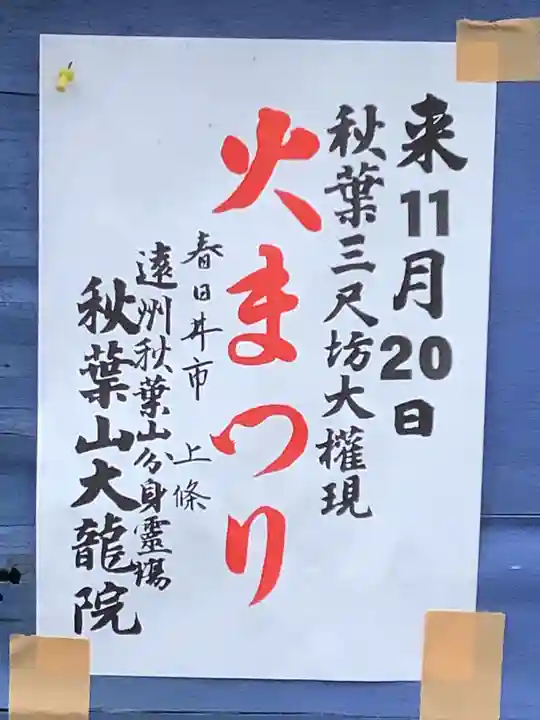 来11月20日
秋葉三尺坊大權現
火まつり
春日井市 上條
遠州秋葉山分身靈場
秋葉山大龍院